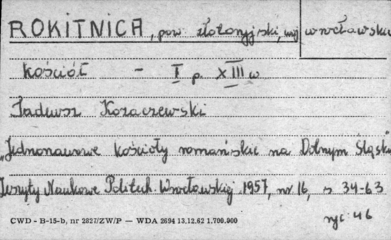 ROKITNICA, pow. złotoryjski, woj wrocławskie
kościół - I p. XIII w
Tadeusz Kozaczewski
"Jednonawowe kościoły romańskie na Dolnym Śląsku
Zeszyty Naukowe Politech. Wrocławskiej 1957, nr 16, s 34-63
ryc 46
CWD - B-15-b, nr 2827/ZW/P — WDA 2694 13.12.62 1.700.000